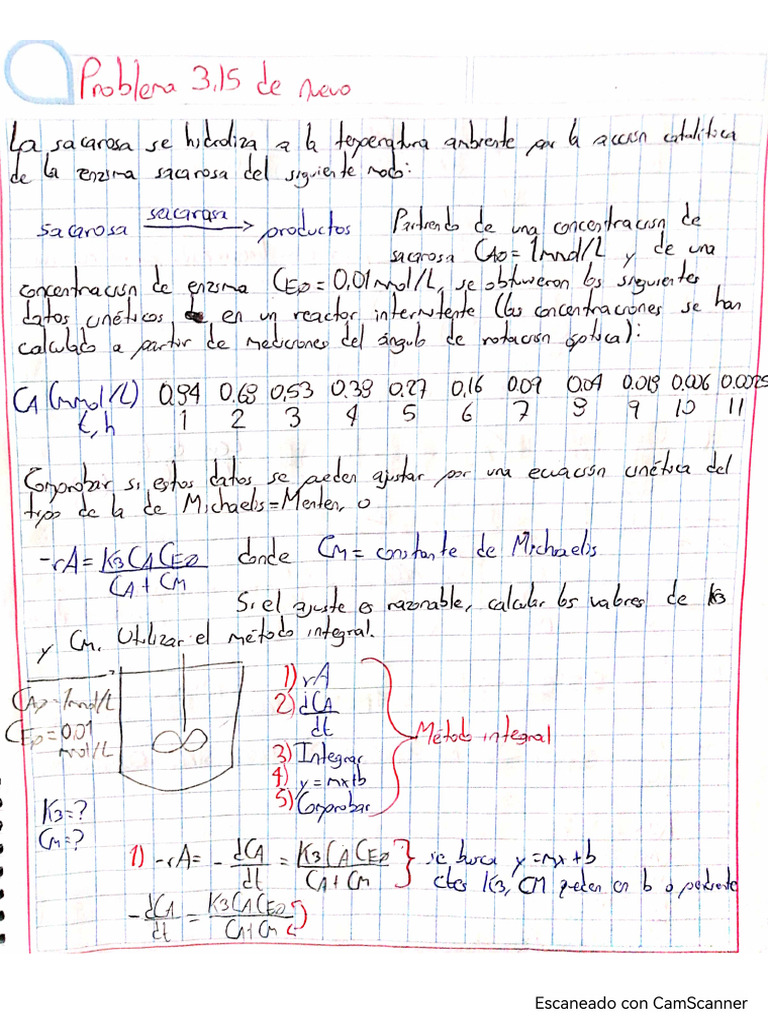 Problema 3,15 de nuevo
La sacarosa se hidroliza a la temperatura ambiente por la acción catalítica
de la enzima sacarosa del siguiente modo:
sacarosa sacarasa→ productos Partiendo de una concentración de
sacarosa CA0 = 1mmol/L y de una
concentración de enzima CE0 = 0,01 mmol/L, se obtuvieron los siguientes
datos cinéticos en un reactor intermitente (las concentraciones se han
calculado a partir de mediciones del ángulo de rotación óptica):
CA (mmol/L) 0.84 0.68 0,53 0.38 0.27 0.16 0.09 0.04 0.018 0.006 0.0025
t, h 1 2 3 4 5 6 7 8 9 10 11
Comprobar si estos datos se pueden ajustar por una ecuación cinética del
tipo de la de Michaelis=Menten, o
-rA = K3 CA CE0 / CA + CM donde CM = constante de Michaelis
Si el ajuste es razonable, calcular los valores de k3
y CM. Utilizar el método integral.
CA0 = 1mmol/L
CE0 = 0,01
mmol/L
K3=?
CM=?
1) rA
2) dCA/dt
3) Integrar
4) y=mx+b
5) Comprobar
Método integral
1) -rA = - dCA/dt = K3 CA CE0 / CA + CM } se busca y=mx+b
ctes K3, CM pueden en b o pendiente
- dCA/dt = K3 CA CE0 / CA + CM
Escaneado con CamScanner